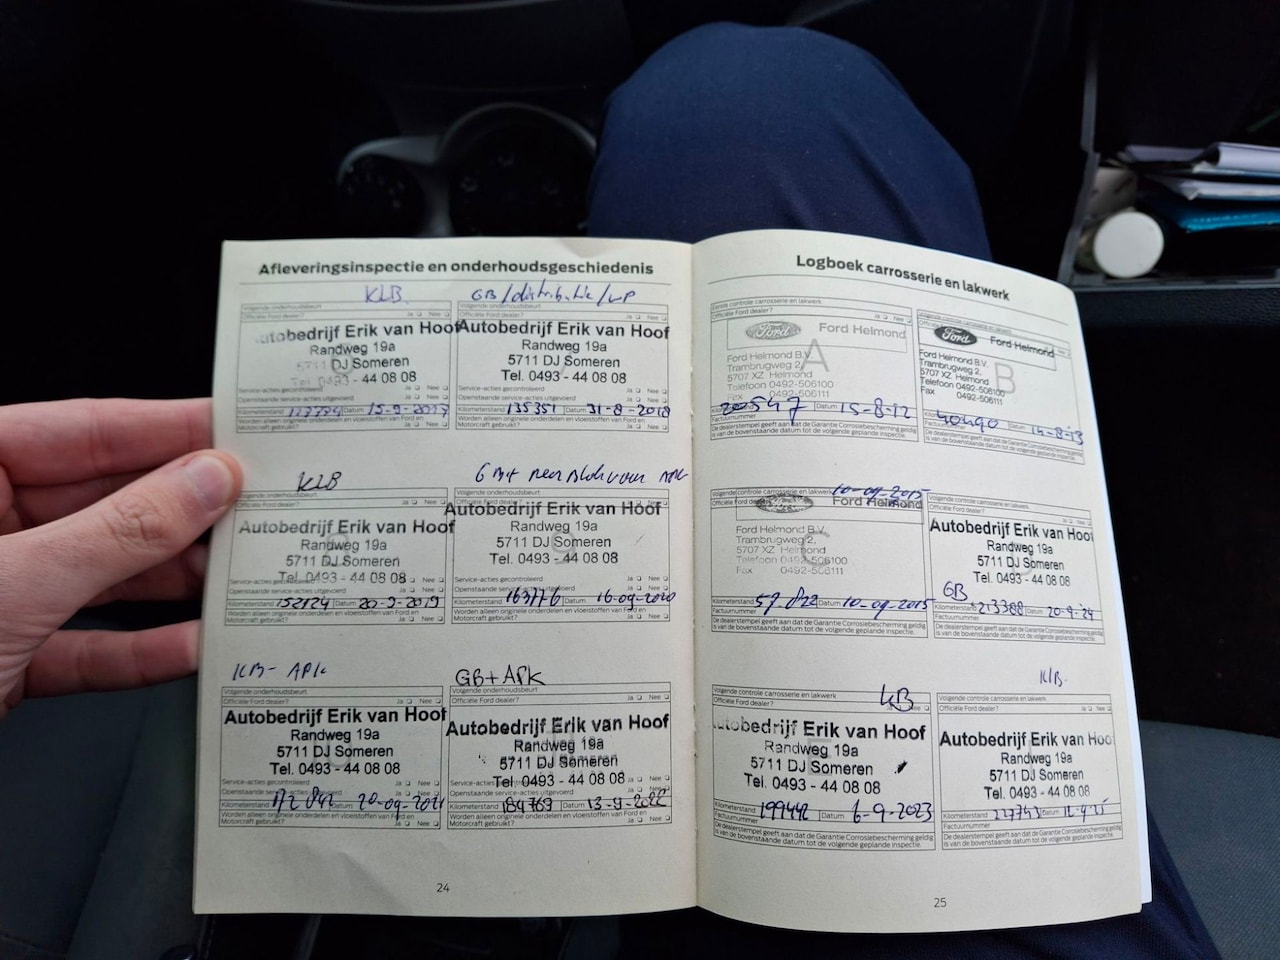 Afleveringsinspectie en onderhoudsgeschiedenis
KLB
Volgende onderhoudsbeurt
Officiële Ford dealer? Ja Nee
Autobedrijf Erik van Hoof
Randweg 19a
5711 DJ Someren
Tel. 0493 - 44 08 08
Service-acties gecontroleerd Ja Nee
Openstaande service-acties uitgevoerd Ja Nee
Kilometerstand Datum 15-9-2017
Worden alleen originele onderdelen en vloeistoffen van Ford en
Motorcraft gebruikt? Ja Nee
GB/distributie/WP
Volgende onderhoudsbeurt
Officiële Ford dealer? Ja Nee
Autobedrijf Erik van Hoof
Randweg 19a
5711 DJ Someren
Tel. 0493 - 44 08 08
Service-acties gecontroleerd Ja Nee
Openstaande service-acties uitgevoerd Ja Nee
Kilometerstand 135351 Datum 31-8-2018
Worden alleen originele onderdelen en vloeistoffen van Ford en
Motorcraft gebruikt? Ja Nee
KLB
Volgende onderhoudsbeurt
Autobedrijf Erik van Hoof
Randweg 19a
5711 DJ Someren
Tel. 0493 - 44 08 08
Ja Nee
Openstaande service-acties uitgevoerd Ja Nee
Kilometerstand 152124 Datum 20-9-2019
Worden alleen originele onderdelen en vloeistoffen van Ford en
Motorcraft gebruikt? Ja Nee
voor APK
Volgende onderhoudsbeurt
Autobedrijf Erik van Hoof
Randweg 19a
5711 DJ Someren
Tel. 0493 - 44 08 08
Service-acties gecontroleerd Ja Nee
Openstaande service-acties uitgevoerd Ja Nee
Kilometerstand 163776 16-09-2020
Worden alleen originele onderdelen en vloeistoffen van Ford en
Motorcraft gebruikt? Ja Nee
KB- APK
Volgende onderhoudsbeurt
Officiële Ford dealer? Ja Nee
Autobedrijf Erik van Hoof
Randweg 19a
5711 DJ Someren
Tel. 0493 - 44 08 08
Service-acties gecontroleerd Ja Nee
Openstaande service-acties uitgevoerd Ja Nee
Kilometerstand Datum 20-09-2021
Worden alleen originele onderdelen en vloeistoffen van Ford en
Motorcraft gebruikt? Ja Nee
GB+APK
Volgende onderhoudsbeurt
Officiële Ford dealer? Ja Nee
Autobedrijf Erik van Hoof
Randweg 19a
5711 DJ Someren
Tel. 0493 - 44 08 08
Ja Nee
Openstaande service-acties uitgevoerd Ja Nee
Kilometerstand 184763 Datum 13-9-2022
Worden alleen originele onderdelen en vloeistoffen van Ford en
Motorcraft gebruikt? Ja Nee
24
Logboek carrosserie en lakwerk
Eerste controle carrosserie en lakwerk
Officiële Ford dealer? Ja Nee
Ford Ford Helmond
A
Ford Helmond B.V.
Trambrugweg 2,
5707 XZ Helmond
Telefoon 0492-506100
Fax 0492-506111
20547 Datum 15-8-12
Factuurnummer
De dealerstempel geeft aan dat de Garantie Corrosiebescherming geldig
is van de bovenstaande datum tot de volgende geplande inspectie.
Volgende controle carrosserie en lakwerk
Ford Ford Helmond
B
Ford Helmond B.V.
Trambrugweg 2,
5707 XZ Helmond
Telefoon 0492-506100
Fax 0492-506111
Datum 14-8-13
De dealerstempel geeft aan dat de Garantie Corrosiebescherming geldig
is van bovenstaande datum tot de volgende geplande inspectie.
Volgende controle carrosserie en lakwerk 10-09-2015
Ford Helmond
C
Ford Helmond B.V.
Trambrugweg 2,
5707 XZ Helmond
Telefoon 0492-506100
Fax 0492-506111
Kilometerstand 57822 Datum 10-09-2015
Factuurnummer
De dealerstempel geeft aan dat de Garantie Corrosiebescherming geldig
is van bovenstaande datum tot de volgende geplande inspectie.
Volgende controle carrosserie en lakwerk
Officiële Ford dealer? Ja Nee
Autobedrijf Erik van Hoof
Randweg 19a
5711 DJ Someren
Tel. 0493 - 44 08 08
GB
Kilometerstand 213388 Datum 20-9-24
Factuurnummer
De dealerstempel geeft aan dat de Garantie Corrosiebescherming geldig
is van bovenstaande datum tot de volgende geplande inspectie.
KB
Volgende controle carrosserie en lakwerk
Officiële Ford dealer? Ja Nee
Autobedrijf Erik van Hoof
Randweg 19a
5711 DJ Someren
Tel. 0493 - 44 08 08
Kilometerstand 199442 6-9-2023
Factuurnummer
De dealerstempel geeft aan dat de Garantie Corrosiebescherming geldig
is van bovenstaande datum tot de volgende geplande inspectie.
KB-
Volgende controle carrosserie en lakwerk
Officiële Ford dealer? Ja Nee
Autobedrijf Erik van Hoof
Randweg 19a
5711 DJ Someren
Tel. 0493 - 44 08 08
Kilometerstand Datum
Factuurnummer
De dealerstempel geeft aan dat de Garantie Corrosiebescherming geldig
is van bovenstaande datum tot de volgende geplande inspectie.
25